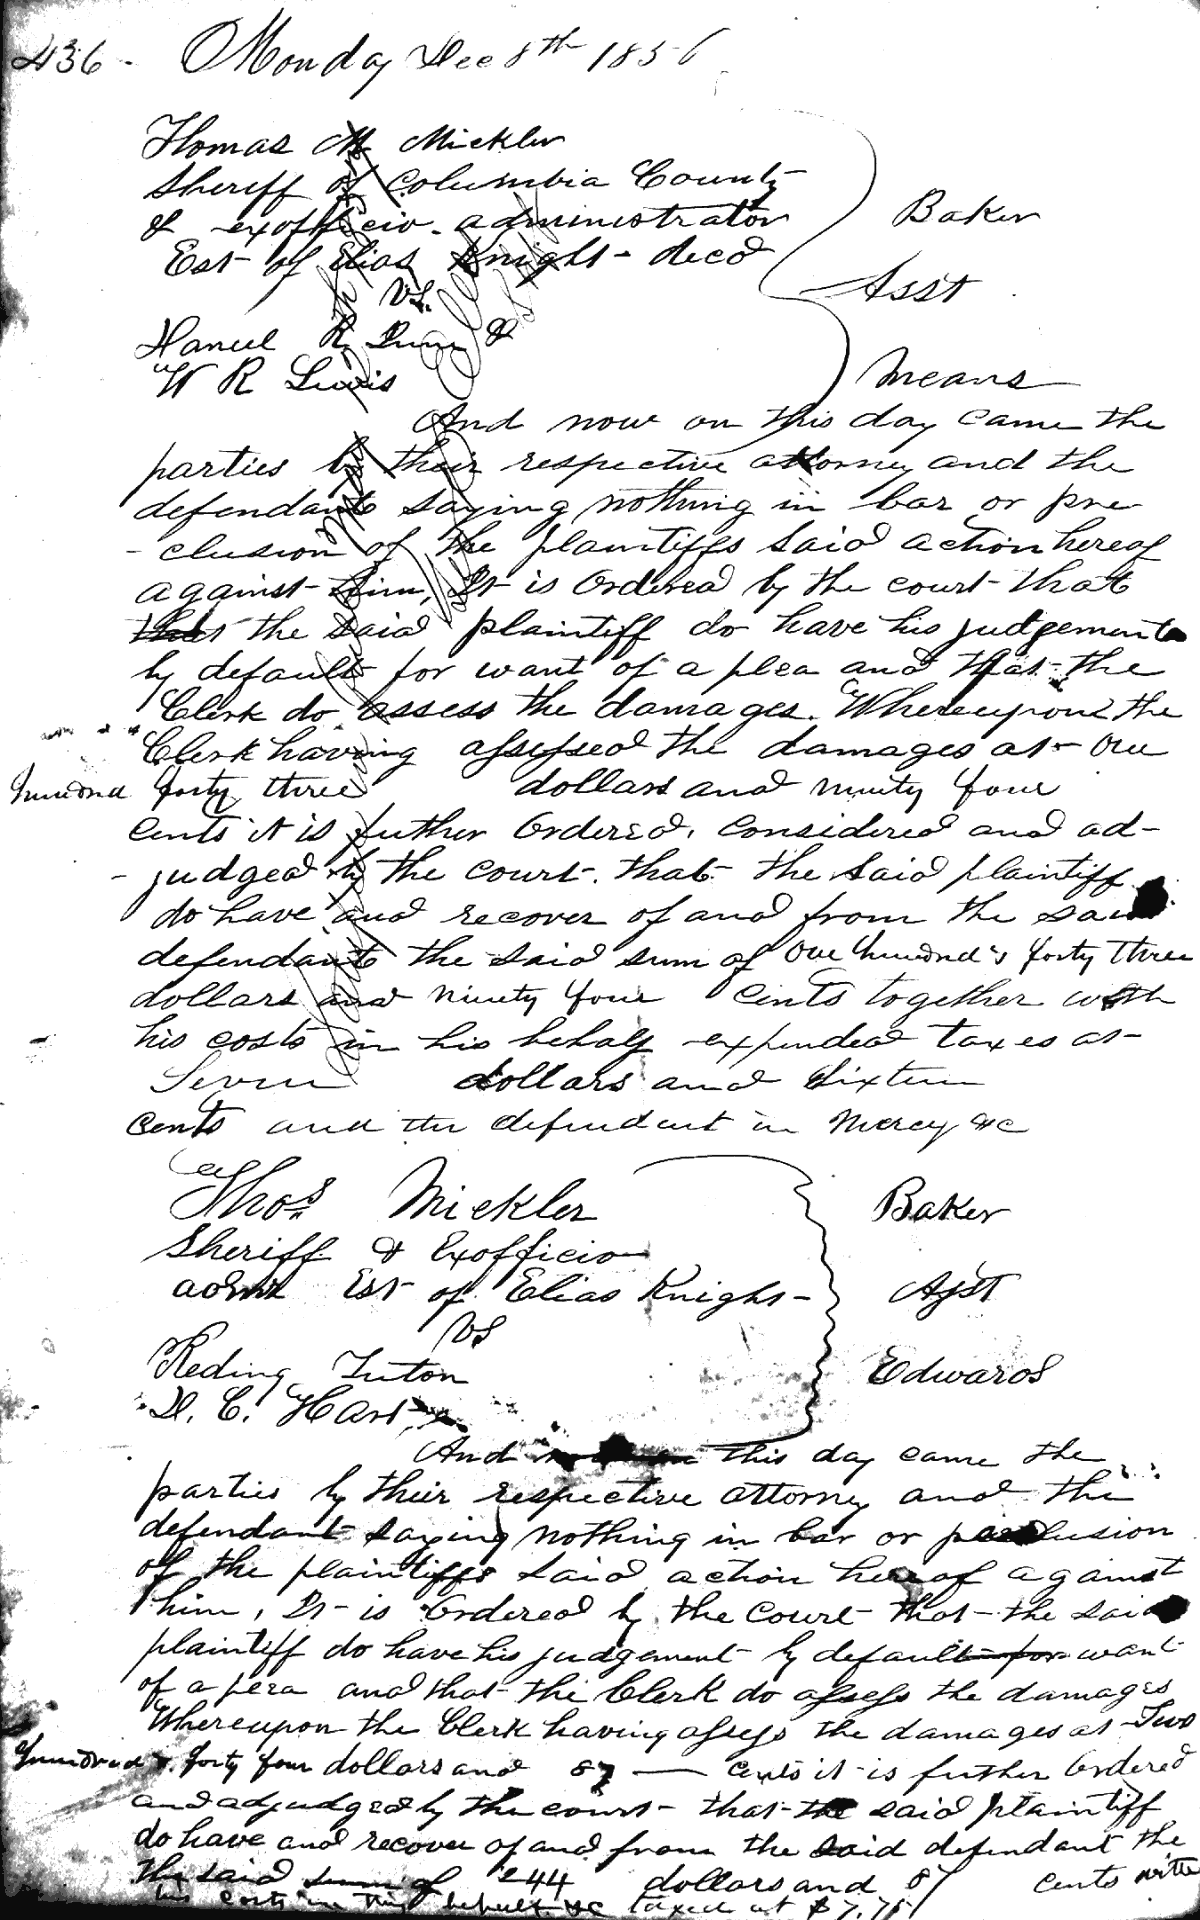 436. Monday Dec 8th 1856
Thomas M Mickler
Sheriff of Columbia County
& exofficio administrator
Est of Elias Knight decd
vs.
R. &
W R Lewis
Baker
Asst
Means
And now on this day came the
parties by their respective attorney and the
defendants saying nothing in bar or pre
- clusion of the plaintiffs said action hereof
against him, It is Ordered by the court that
the said plaintiff do have his judgement
by default for want of a plea and that the
Clerk do assess the damages. Whereupon the
Clerk having assessed the damages at One
hundred forty three dollars and ninety four
cents it is futher Ordered, considered and ad-
- judged by the court. that the said plaintiff
do have and recover of and from the said
defendants the said sum of One hundred & forty three
dollars and ninety four cents together with
his costs in his behalf expended taxes at
Seven dollars and Sixteen
cents and the defendant in mercy &c
Thos Mickler
Sheriff & Exofficio
admr Est of Elias Knight
vs
Reding Tuton
D. C. Hart
Baker
Asst
Edwards
And this day came the
parties by their respective attorney and the
defendant saying nothing in bar or preclusion
of the plaintiffs said action hereof against
him, It is Ordered by the Court that the said
plaintiff do have his judgement by default for want
of a plea and that the Clerk do assess the damages
Whereupon the Clerk having assess the damages at Two
hundred & forty four dollars and 87 cents it is futher Ordered
and adjudged by the court that the said plaintiff
do have and recover of and from the said defendant the
the said sum of 244 dollars and 87 cents with
his costs in this behalf &c taxed at $7.75